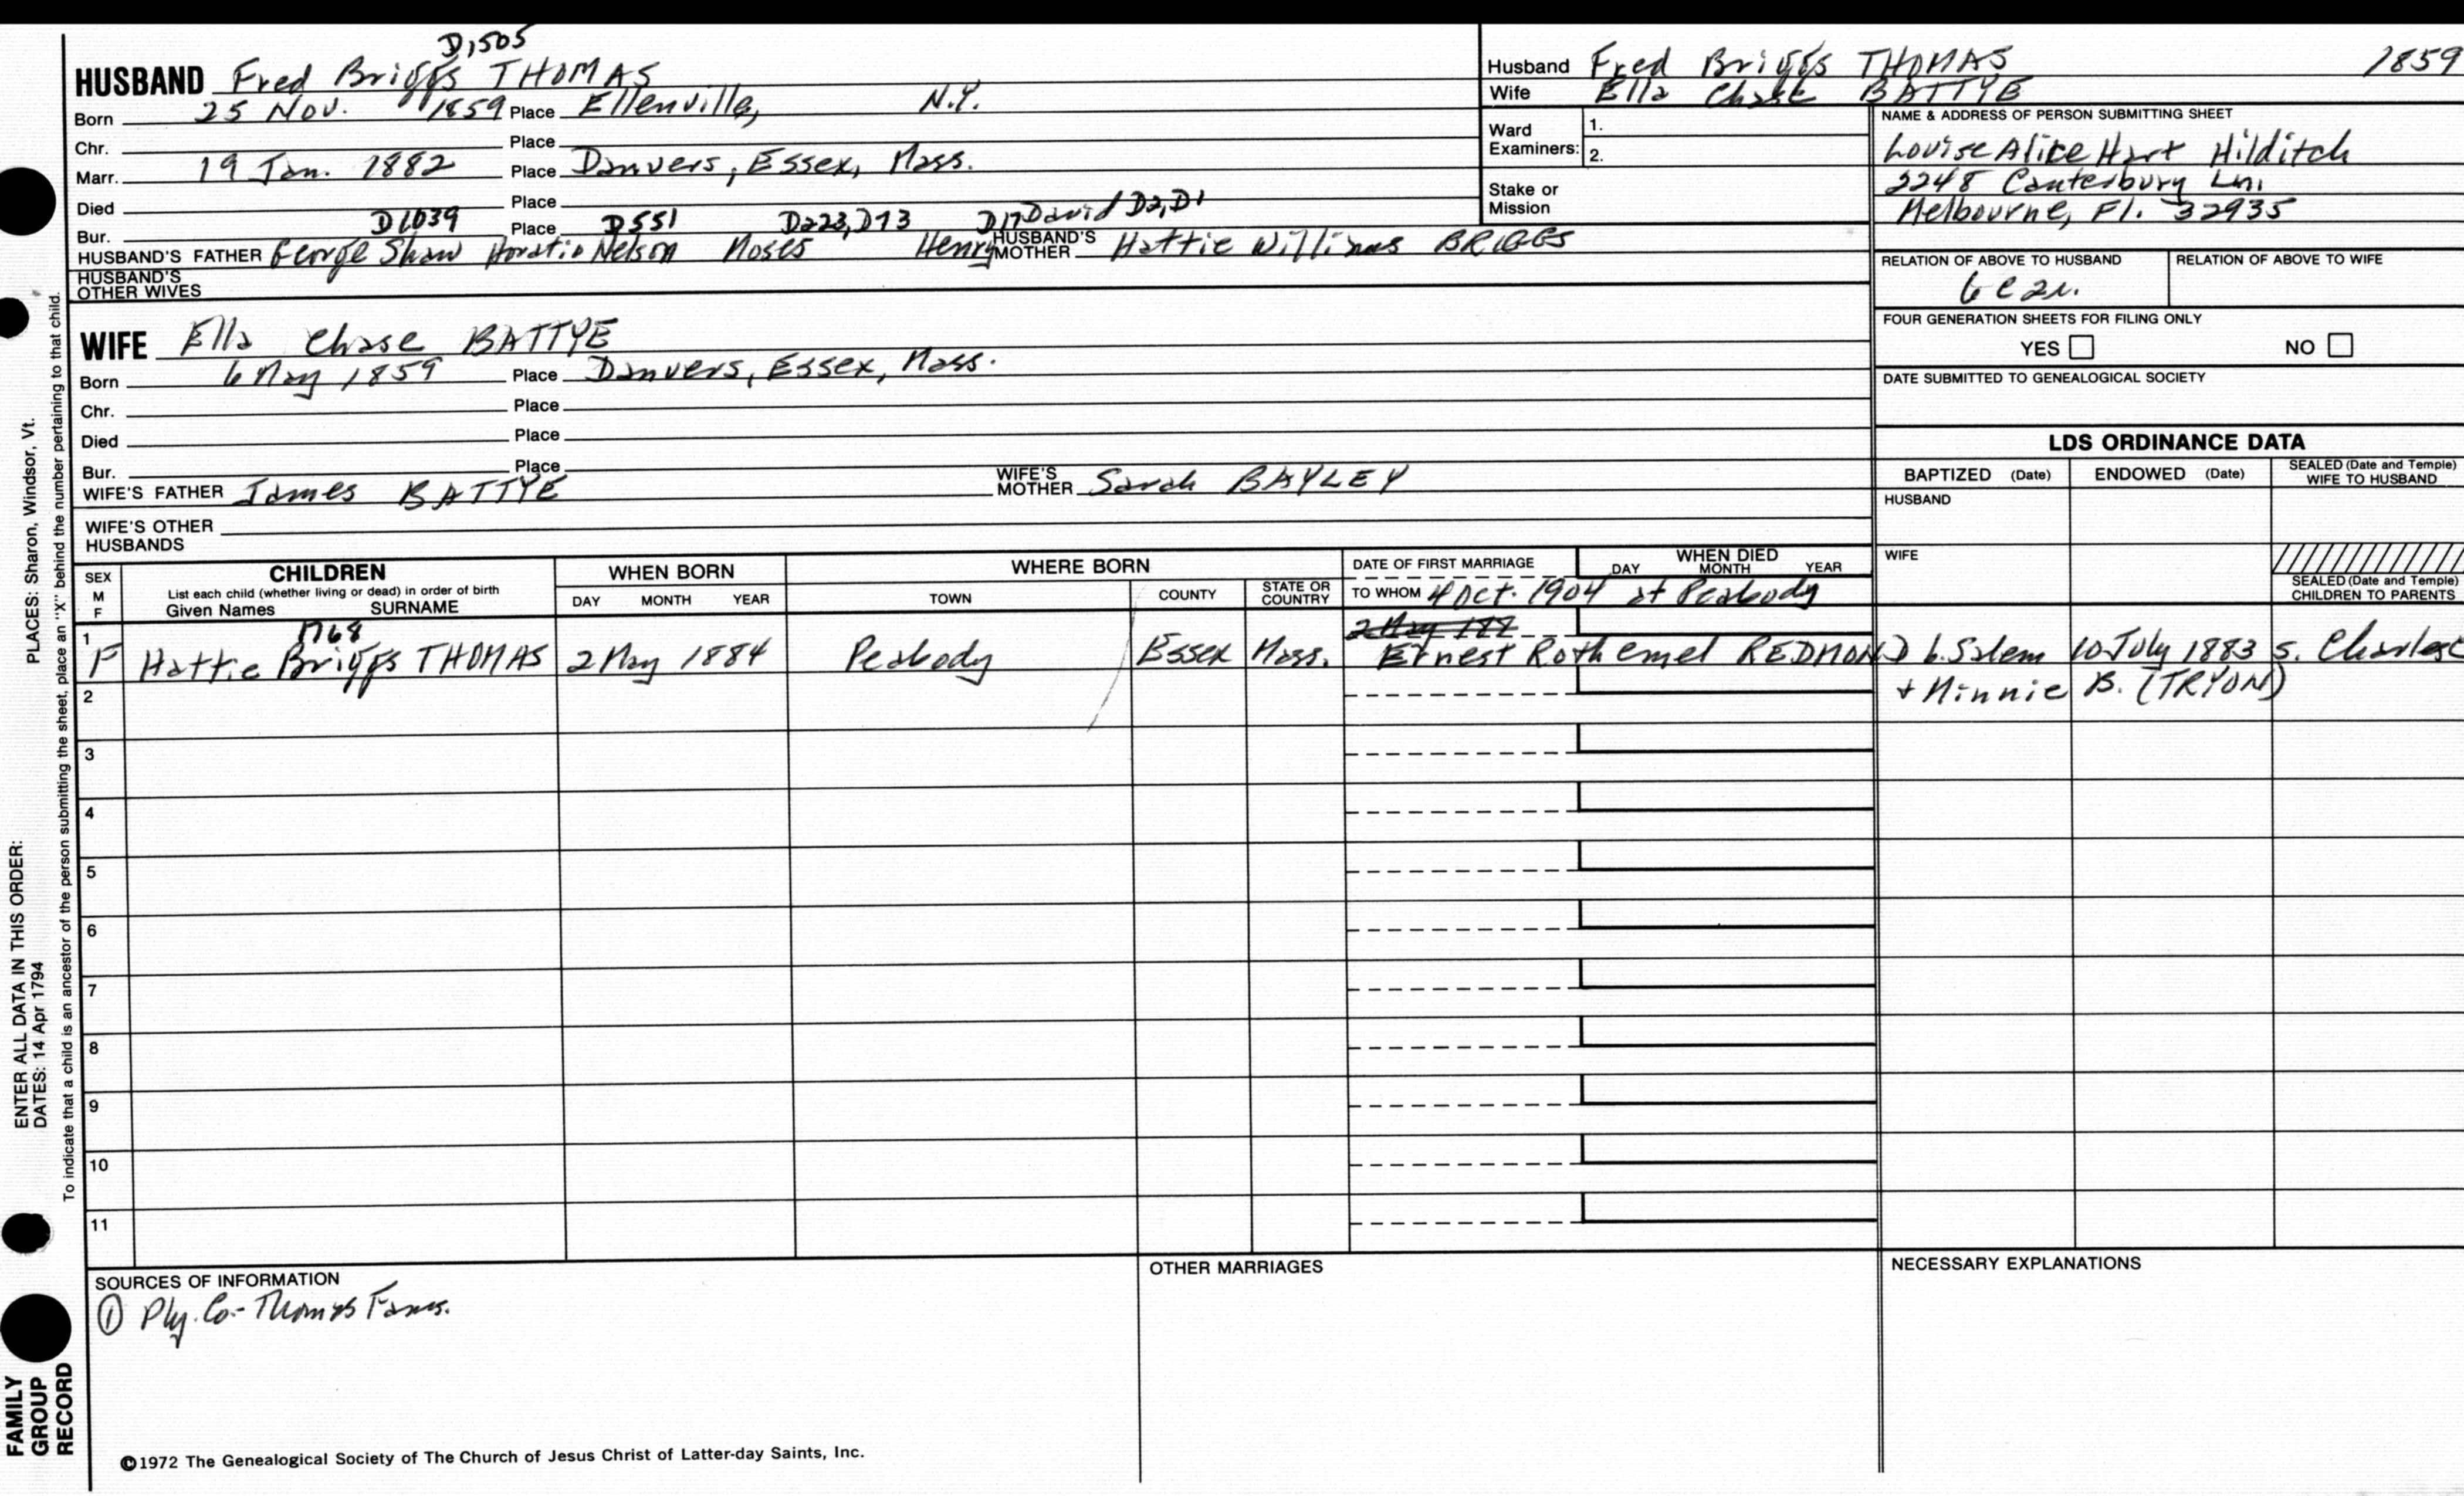 D1505
HUSBAND Fred Briggs THOMAS
Born 25 Nov. 1859 Place Ellenville, N.Y.
Chr. Place
Marr. 19 Jan. 1882 Place Danvers, Essex, Mass.
Died Place
D1039 D551 D223, D73 D17 David D2, D1
Bur. Place
HUSBAND'S FATHER George Shaw Horatio Nelson Moses Henry HUSBAND'S MOTHER Hattie Williams BRIGGS
HUSBAND'S OTHER WIVES
WIFE Ella Chase BATTYE
Born 6 May 1859 Place Danvers, Essex, Mass.
Chr. Place
Died Place
Bur. Place
WIFE'S FATHER James BATTYE WIFE'S MOTHER Sarah BAYLEY
WIFE'S OTHER HUSBANDS
Husband Fred Briggs THOMAS 1859
Wife Ella Chase BATTYE
Ward Examiners: 1.
2.
Stake or Mission
NAME & ADDRESS OF PERSON SUBMITTING SHEET
Louise Alice Hart Hilditch
2248 Canterbury Ln.
Melbourne, Fl. 32935
RELATION OF ABOVE TO HUSBAND RELATION OF ABOVE TO WIFE
FOUR GENERATION SHEETS FOR FILING ONLY
YES NO
DATE SUBMITTED TO GENEALOGICAL SOCIETY
LDS ORDINANCE DATA
BAPTIZED (Date) ENDOWED (Date) SEALED (Date and Temple) WIFE TO HUSBAND
HUSBAND
WIFE
SEALED (Date and Temple) CHILDREN TO PARENTS
SEX M F
CHILDREN
List each child (whether living or dead) in order of birth
Given Names SURNAME
WHEN BORN
DAY MONTH YEAR
WHERE BORN
TOWN COUNTY STATE OR COUNTRY
DATE OF FIRST MARRIAGE
TO WHOM
WHEN DIED
DAY MONTH YEAR
4 Oct. 1904 at Peabody
1768
2 May 188
1 F Hattie Briggs THOMAS 2 May 1884 Peabody Essex Mass. Ernest Rothemel REDMOND b. Salem 10 July 1883 s. Charles
+ Minnie B. (TRYON)
2
3
4
5
6
7
8
9
10
11
SOURCES OF INFORMATION
① Ply. Co.- Thomas Fams.
OTHER MARRIAGES
NECESSARY EXPLANATIONS
©1972 The Genealogical Society of The Church of Jesus Christ of Latter-day Saints, Inc.
ENTER ALL DATA IN THIS ORDER:
DATES: 14 Apr 1794
PLACES: Sharon, Windsor, Vt.
To indicate that a child is an ancestor of the person submitting the sheet, place an "X" behind the number pertaining to that child.
FAMILY
GROUP
RECORD